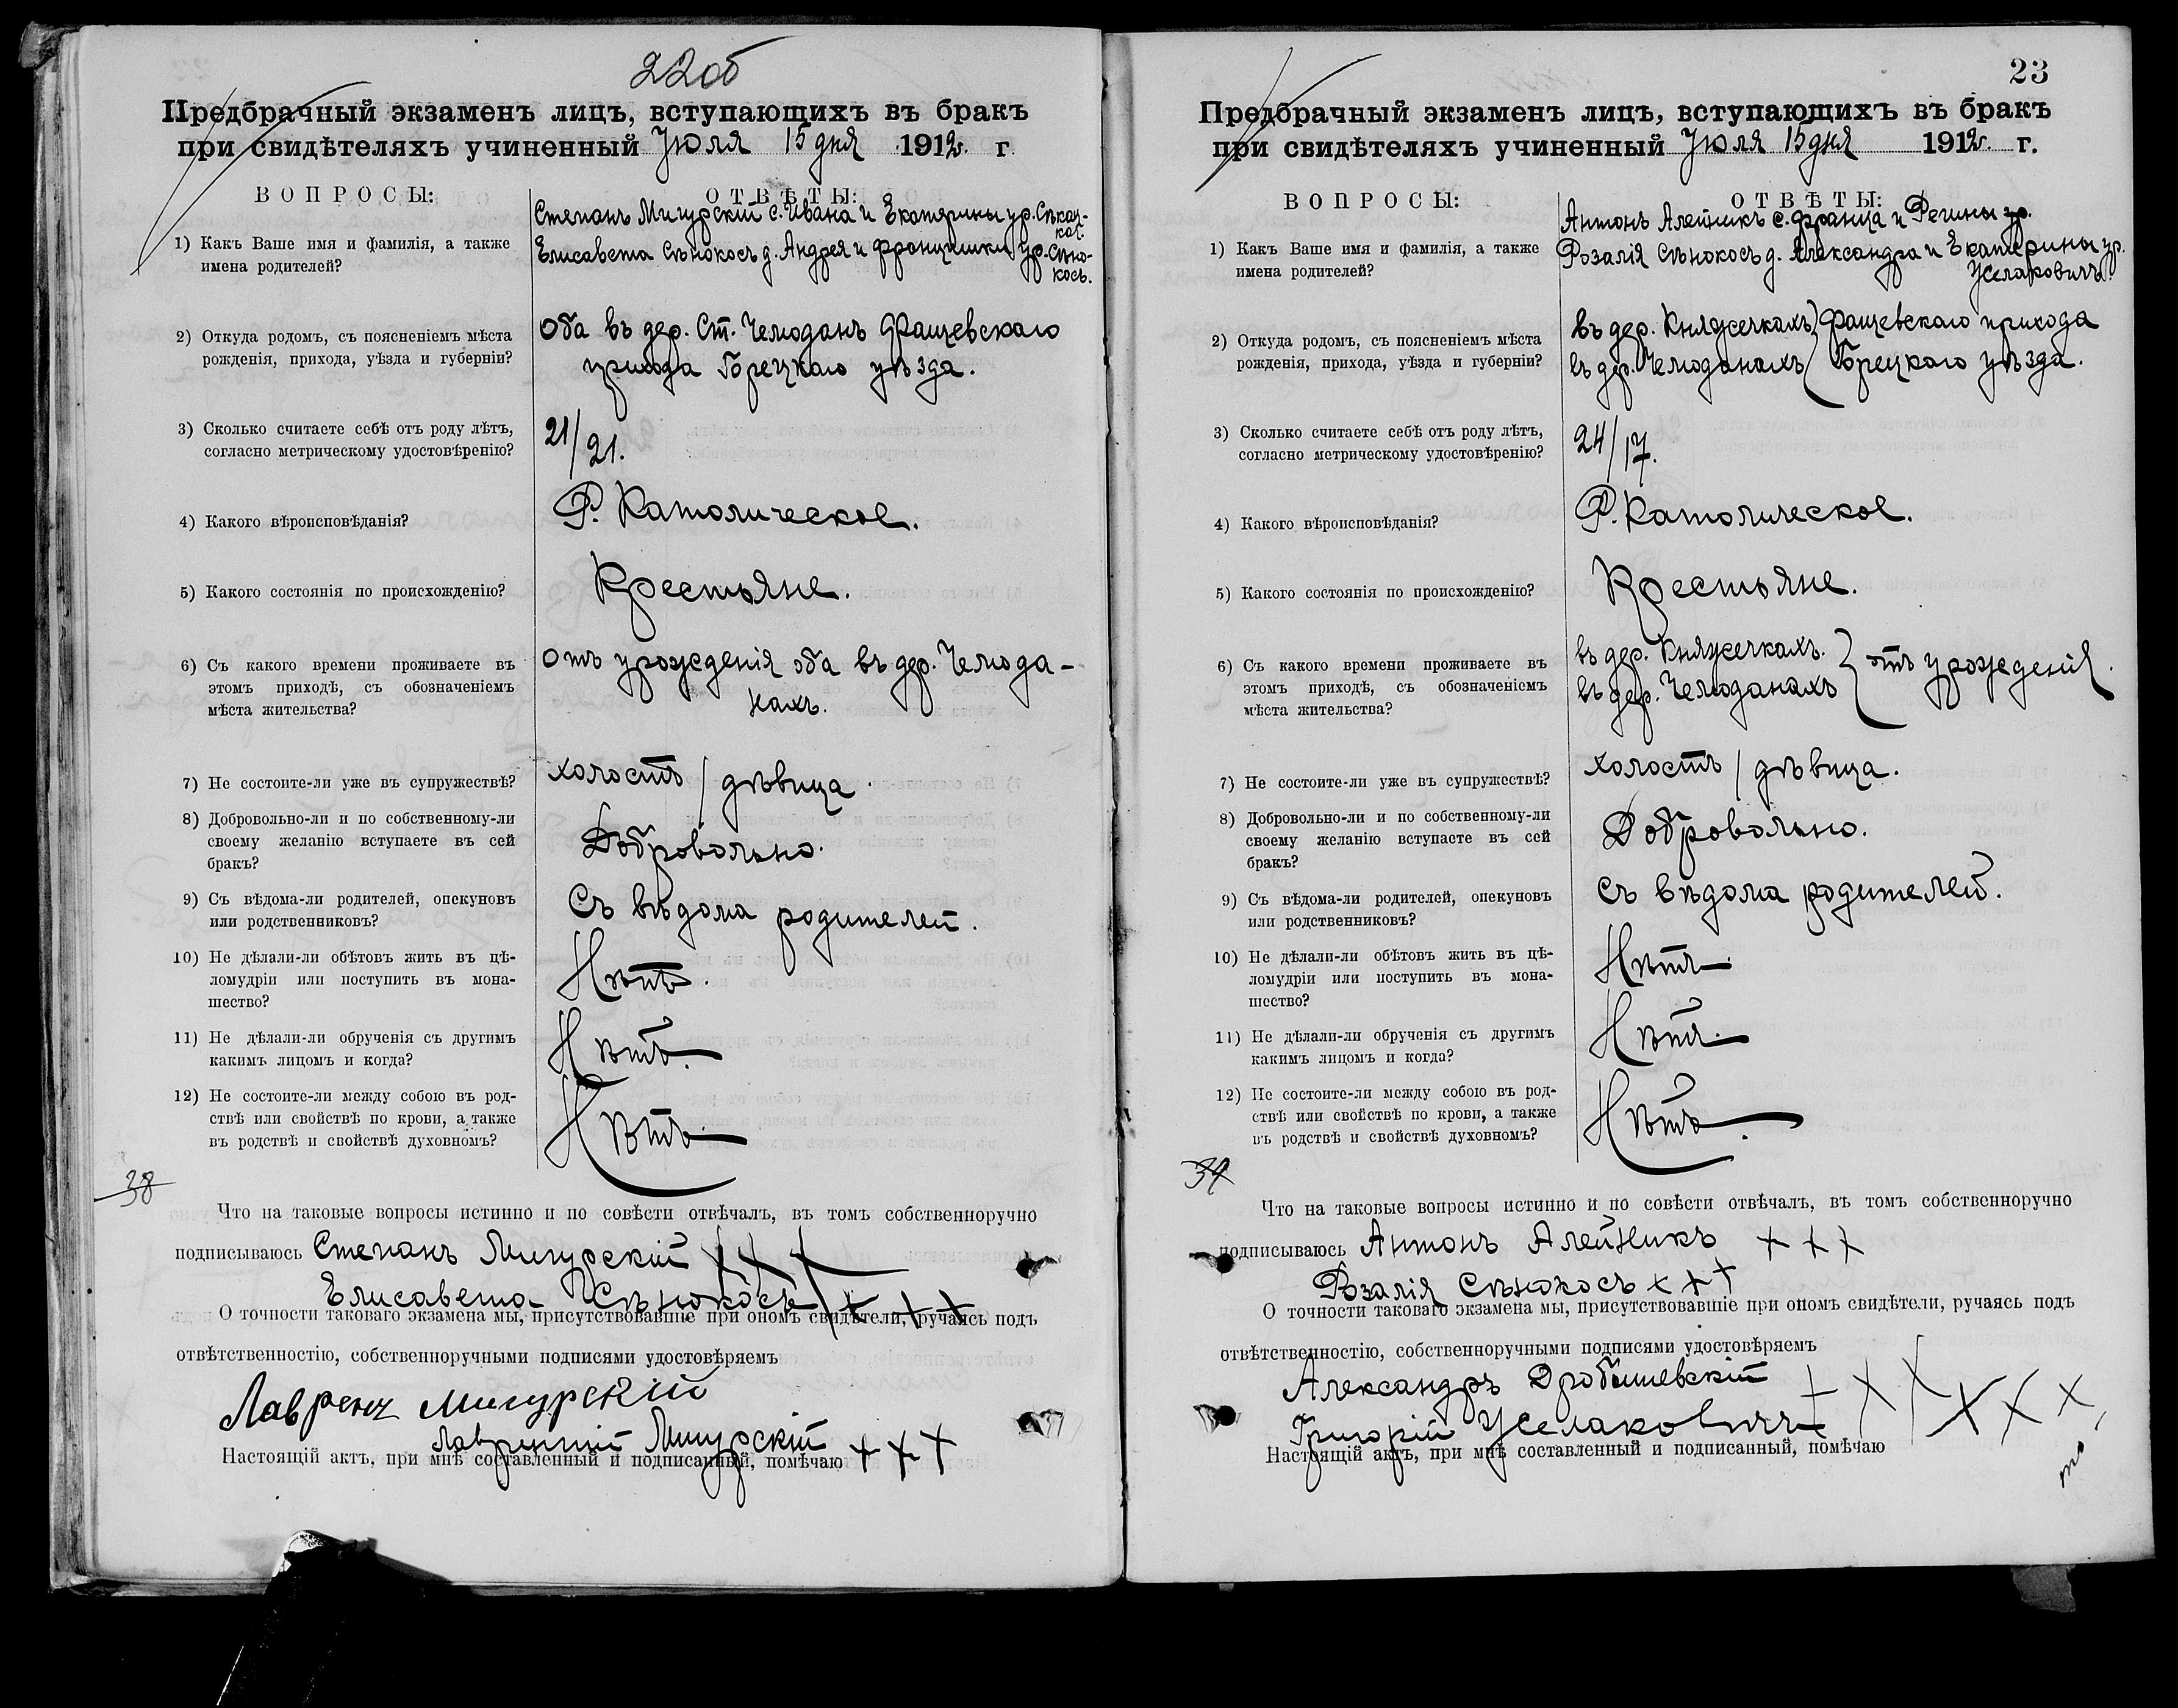 22об
Предбрачный экзаменъ лицъ, вступающихъ въ бракъ
при свидѣтеляхъ учиненный Іюля 15 дня 1912 г.
ВОПРОСЫ: ОТВѢТЫ:
1) Какъ Ваше имя и фамилія, а также
имена родителей?
Степанъ Мигурскій с. Ивана и Екатерины ур.
Елисавета Сѣнокосъ д. Андрея и Францишки ур. Сѣно-
косъ.
2) Откуда родомъ, съ поясненіемъ мѣста
рожденія, прихода, уѣзда и губерніи?
Оба въ дер. Ст. Чемоданъ Фащевскаго
прихода Горецкаго уѣзда.
3) Сколько считаете себѣ отъ роду лѣтъ,
согласно метрическому удостовѣренію?
21/21.
4) Какого вѣроисповѣданія?
Р. Католическое.
5) Какого состоянія по происхожденію?
Крестьяне.
6) Съ какого времени проживаете въ
этомъ приходѣ, съ обозначеніемъ
мѣста жительства?
Отъ урожденія оба въ дер. Чемода-
нахъ.
7) Не состоите-ли уже въ супружествѣ?
холостъ / дѣвица.
8) Добровольно-ли и по собственному-ли
своему желанію вступаете въ сей
бракъ?
Добровольно.
9) Съ вѣдома-ли родителей, опекуновъ
или родственниковъ?
Съ вѣдома родителей.
10) Не дѣлали-ли обѣтовъ жить въ цѣ-
ломудріи или поступить въ мона-
шество?
Нѣтъ.
11) Не дѣлали-ли обрученія съ другимъ
какимъ лицомъ и когда?
Нѣтъ.
12) Не состоите-ли между собою въ род-
ствѣ или свойствѣ по крови, а также
въ родствѣ и свойствѣ духовномъ?
Нѣтъ.
38
Что на таковые вопросы истинно и по совѣсти отвѣчалъ, въ томъ собственноручно
подписываюсь Степанъ Мигурскій +++
Елисавета Сѣнокосъ +++
О точности таковаго экзамена мы, присутствовавшіе при ономъ свидѣтели, ручаясь подъ
отвѣтственностію, собственноручными подписями удостовѣряемъ
Лавренц Мигурскій
Лаврентій Мигурскій +++
Настоящій актъ, при мнѣ составленный и подписанный, помѣчаю
23
Предбрачный экзаменъ лицъ, вступающихъ въ бракъ
при свидѣтеляхъ учиненный Іюля 15 дня 1912 г.
ВОПРОСЫ: ОТВѢТЫ:
1) Какъ Ваше имя и фамилія, а также
имена родителей?
Антонъ Алейникъ с. Франца и Регины ур.
Розалія Сѣнокосъ д. Александра и Екатерины ур.
Услаковичъ.
2) Откуда родомъ, съ поясненіемъ мѣста
рожденія, прихода, уѣзда и губерніи?
въ дер. Княжечкахъ } Фащевскаго прихода
въ дер. Чемоданахъ } Горецкаго уѣзда.
3) Сколько считаете себѣ отъ роду лѣтъ,
согласно метрическому удостовѣренію?
24/17.
4) Какого вѣроисповѣданія?
Р. Католическое.
5) Какого состоянія по происхожденію?
Крестьяне.
6) Съ какого времени проживаете въ
этомъ приходѣ, съ обозначеніемъ
мѣста жительства?
въ дер. Княжечкахъ. } отъ урожденія.
въ дер. Чемоданахъ
7) Не состоите-ли уже въ супружествѣ?
холостъ / дѣвица.
8) Добровольно-ли и по собственному-ли
своему желанію вступаете въ сей
бракъ?
Добровольно.
9) Съ вѣдома-ли родителей, опекуновъ
или родственниковъ?
Съ вѣдома родителей.
10) Не дѣлали-ли обѣтовъ жить въ цѣ-
ломудріи или поступить въ мона-
шество?
Нѣтъ.
11) Не дѣлали-ли обрученія съ другимъ
какимъ лицомъ и когда?
Нѣтъ.
12) Не состоите-ли между собою въ род-
ствѣ или свойствѣ по крови, а также
въ родствѣ и свойствѣ духовномъ?
Нѣтъ.
39
Что на таковые вопросы истинно и по совѣсти отвѣчалъ, въ томъ собственноручно
подписываюсь Антонъ Алейникъ +++
Розалія Сѣнокосъ +++
О точности таковаго экзамена мы, присутствовавшіе при ономъ свидѣтели, ручаясь подъ
отвѣтственностію, собственноручными подписями удостовѣряемъ
Александръ Дробышевскій +++
Григорій Услаковичъ +++
Настоящій актъ, при мнѣ составленный и подписанный, помѣчаю